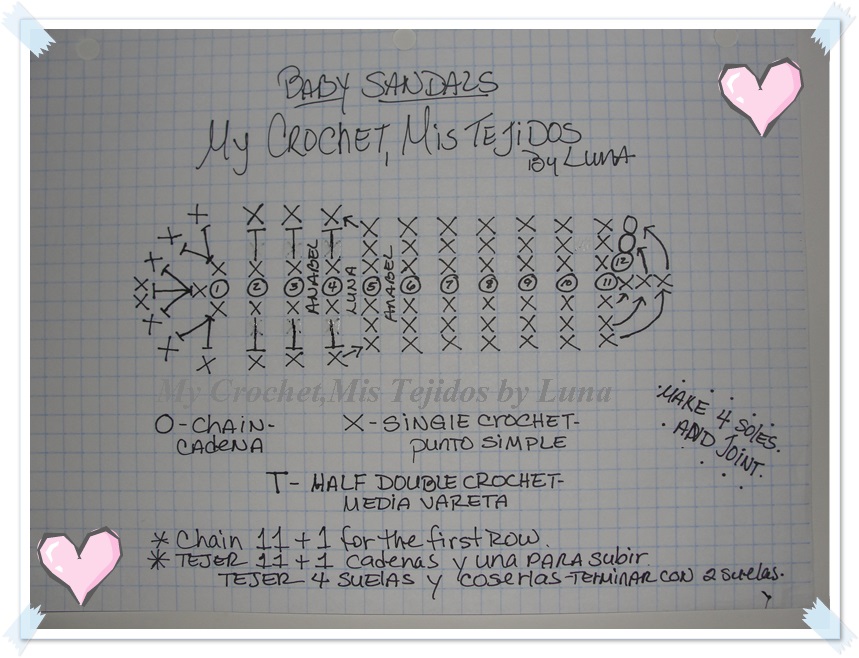 BABY SANDALS
My CROCHET, MIS TEJIDOS
By LUNA
1 2 3 4 5 6 7 8 9 10 11 12
ANABEL
LUNA
ANABEL
My Crochet,Mis Tejidos by Luna
O-CHAIN-
CADENA
X-SINGLE CROCHET-
PUNTO SIMPLE
MAKE 4 SOLES.
AND JOINT.
T- HALF DOUBLE CROCHET-
MEDIA VARETA
* Chain 11+1 for the first Row.
* TEJER 11+1 cadenas y una PARA subir.
TEJER 4 SUELAS y coserlas-TERMINAR CON 2 suelas.